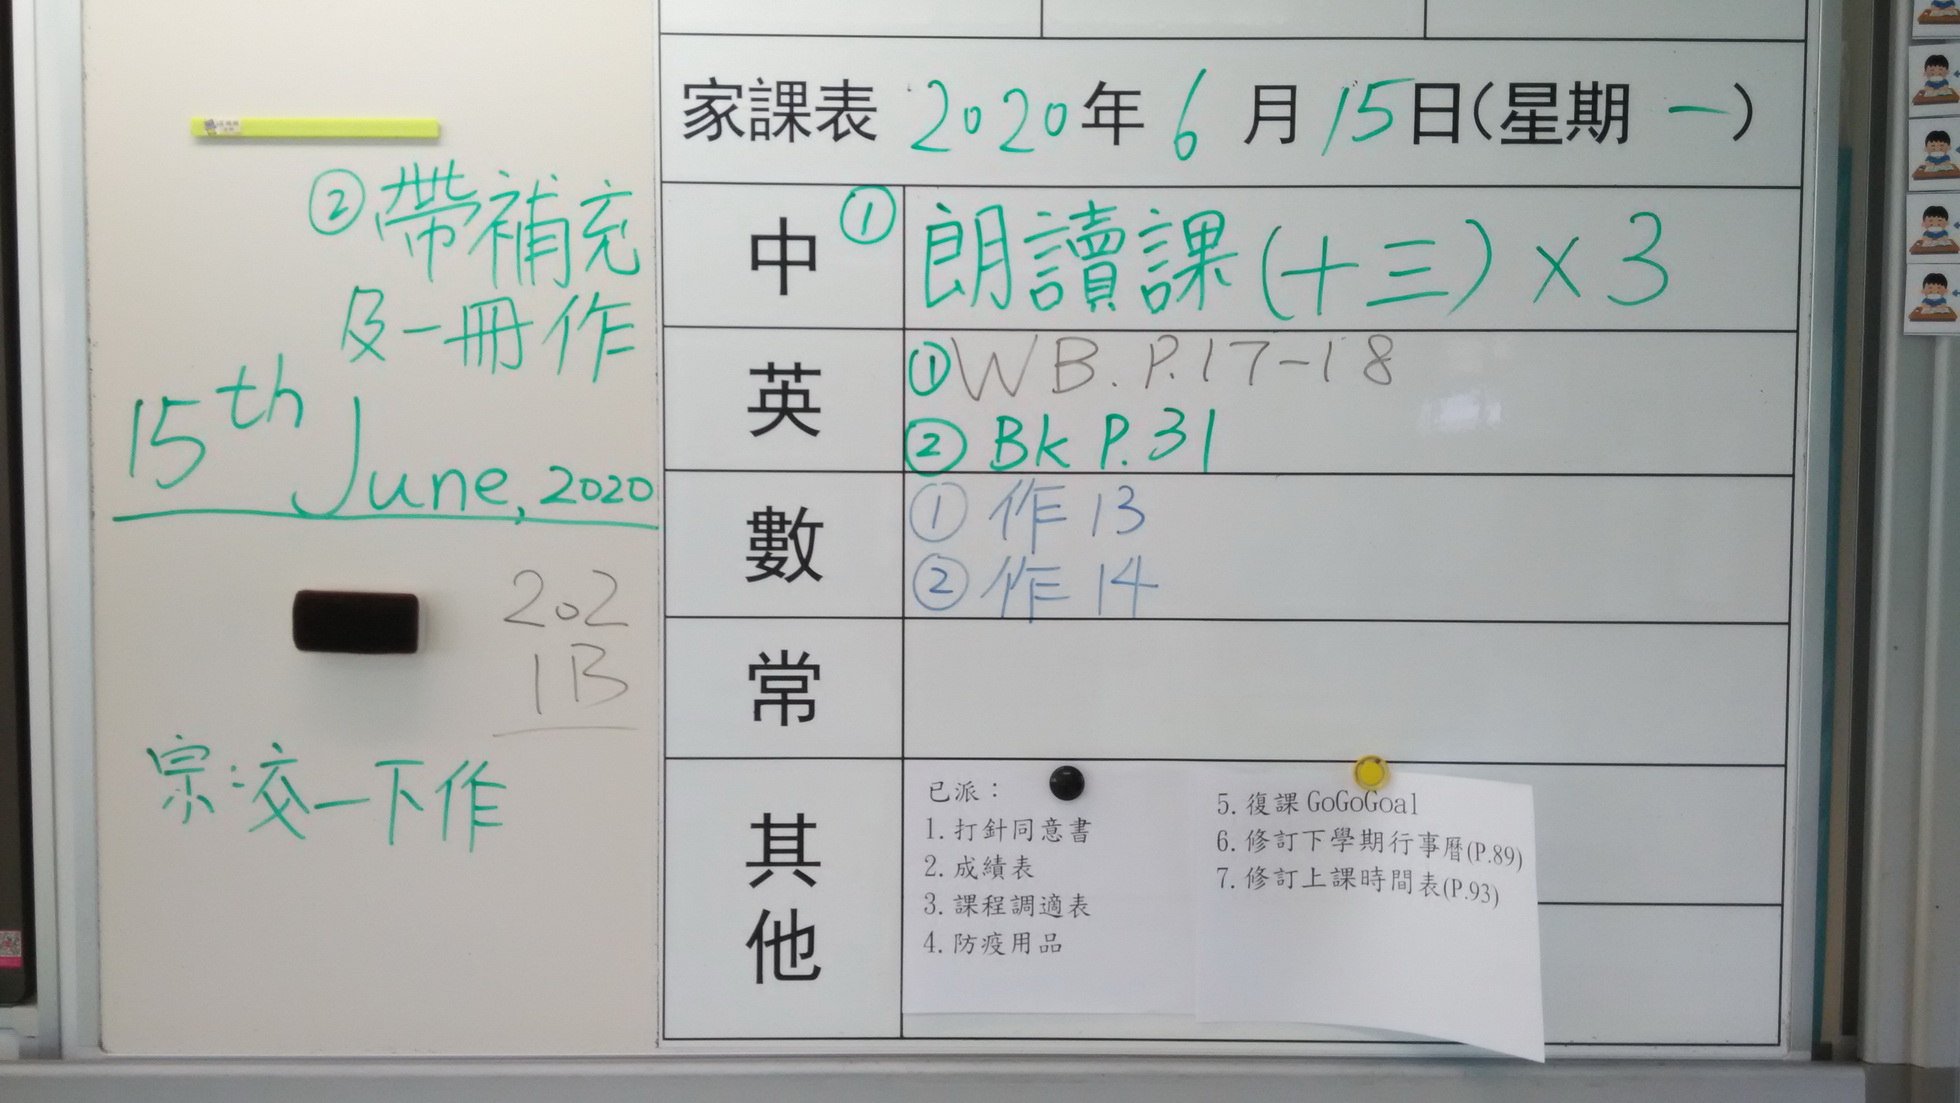 家課表 2020年6月15日(星期一)
中 ① 朗讀課(十三)×3
② 帶補充
及一冊作
英 ① WB. P.17-18
② Bk P.31
數 ① 作 13
② 作 14
常
其他
已派：
1. 打針同意書
2. 成績表
3. 課程調適表
4. 防疫用品
5. 復課 GoGoGoal
6. 修訂下學期行事曆(P.89)
7. 修訂上課時間表(P.93)
15th June, 2020
202
1B
宗:交一下作